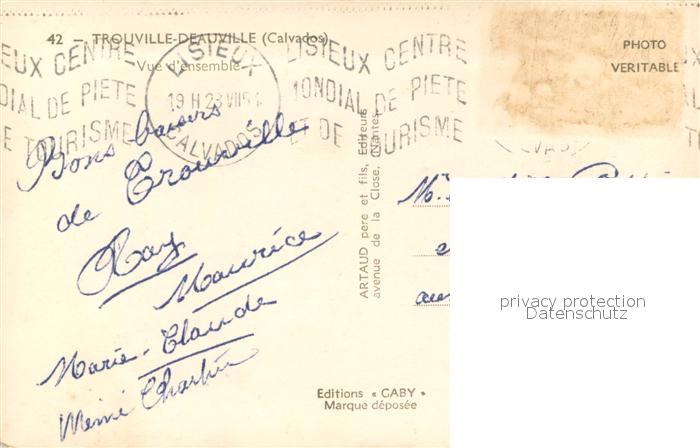 42 — TROUVILLE-DEAUVILLE (Calvados)
Vue d'ensemble
LISIEUX
19 H 23 VII 54
CALVADOS
EUX CENTRE
DIAL DE PIETE
E TOURISME
LISIEUX CENTRE
MONDIAL DE PIETE
ET DE TOURISME
PHOTO
VERITABLE
Bons baisers
de Trouville
Maurice
Marie-Claude
Mémé
ARTAUD pere et fils, Editeurs
avenue de la Close, Nantes
Editions « GABY »
Marque déposée
privacy protection
Datenschutz